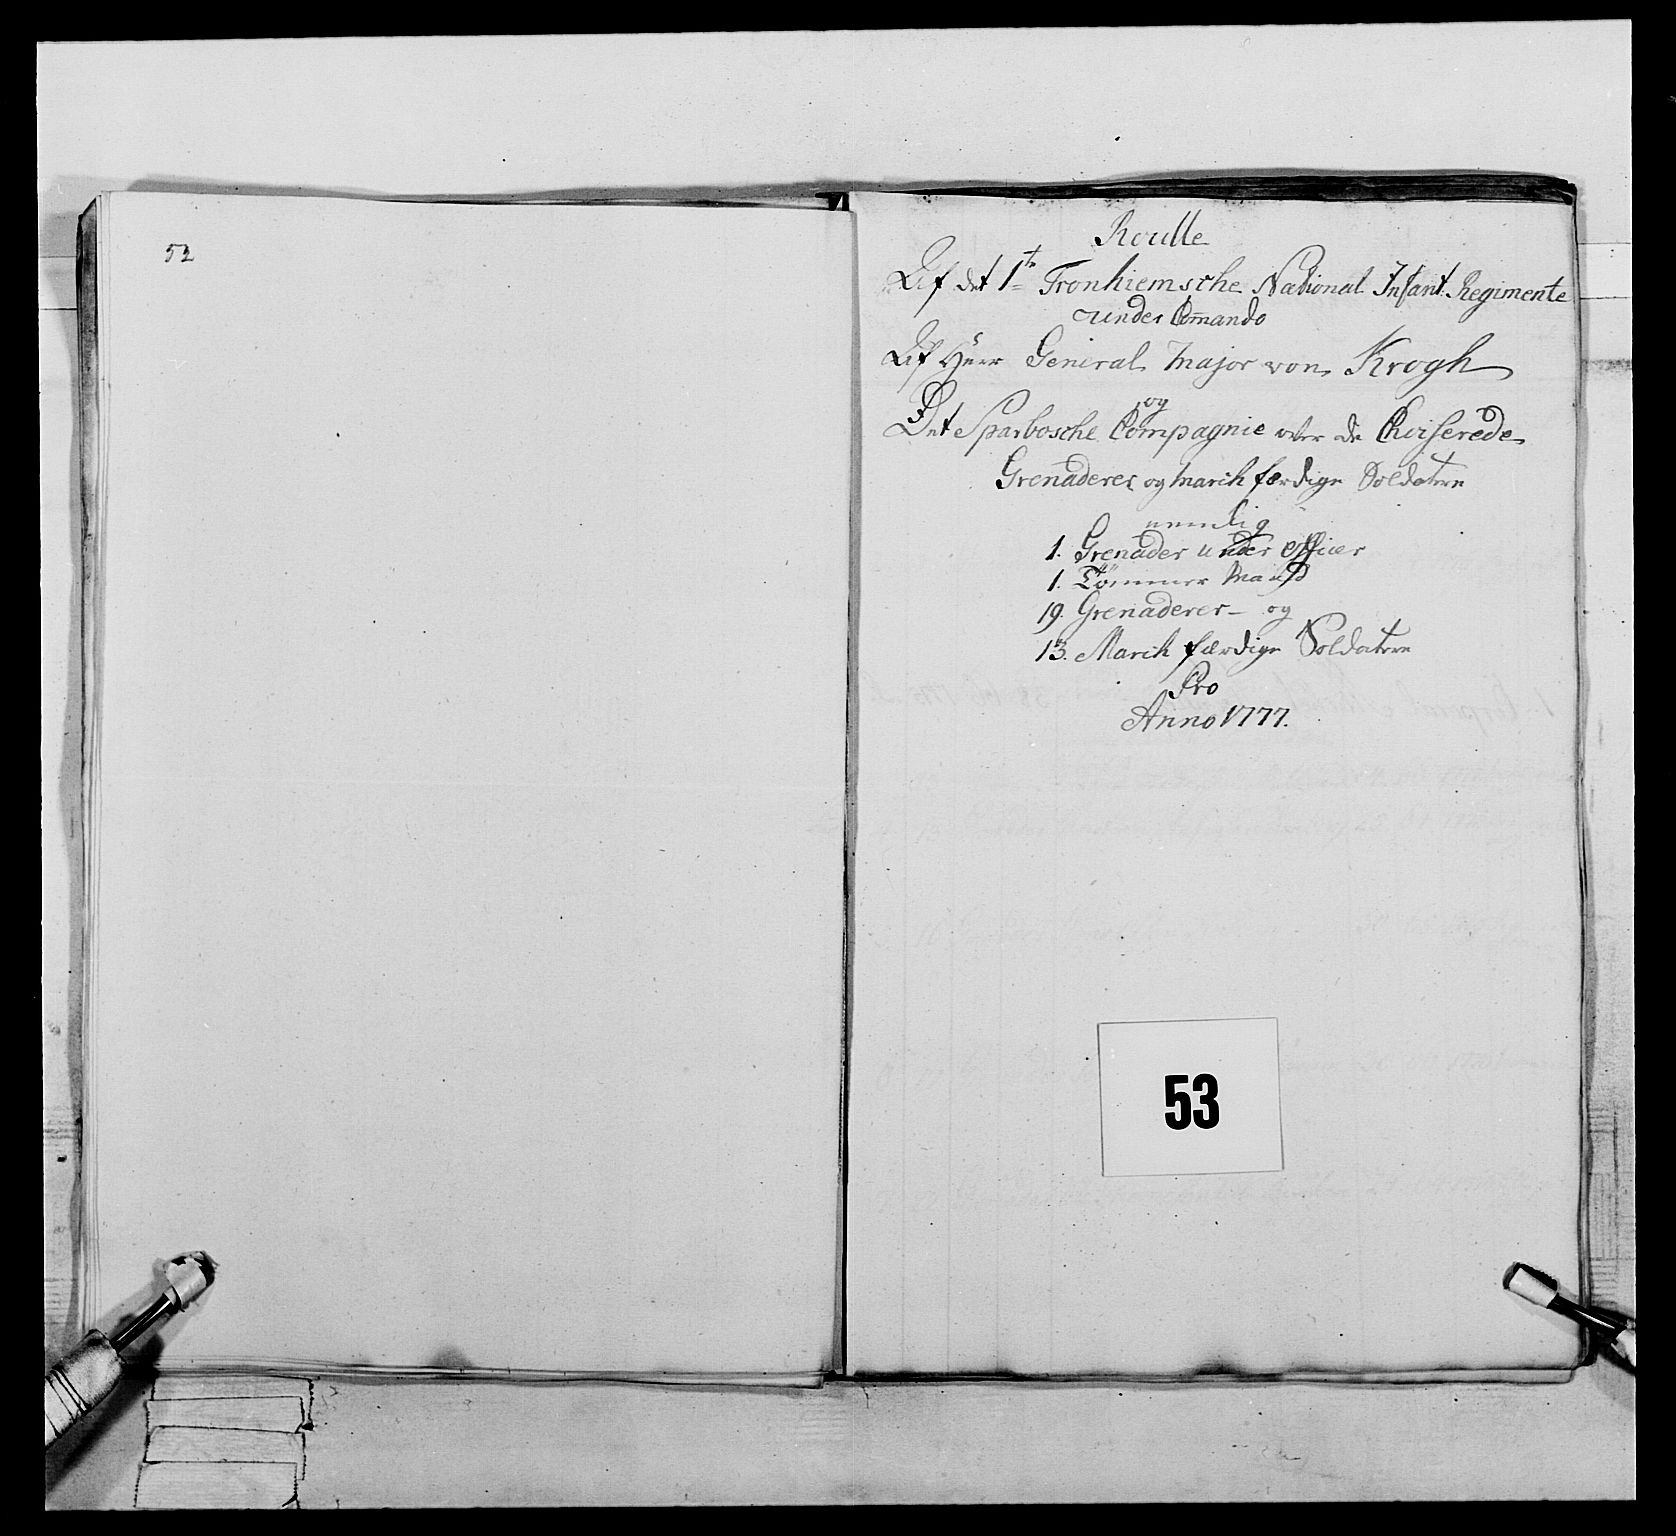 52
Roulle
Af det 1te Tronhiemsche National Infant: Regimente
under Comando
Af Herr General Major von Krogh
og
Det Sparbosche Compagnie over de Choiserede
Grenaderer og March færdige Soldatere
nemlig
1. Grenader under Officier
1. Tömmer Mand
19. Grenaderer - og
13. March færdige Soldatere
Pro
Anno 1777.
53